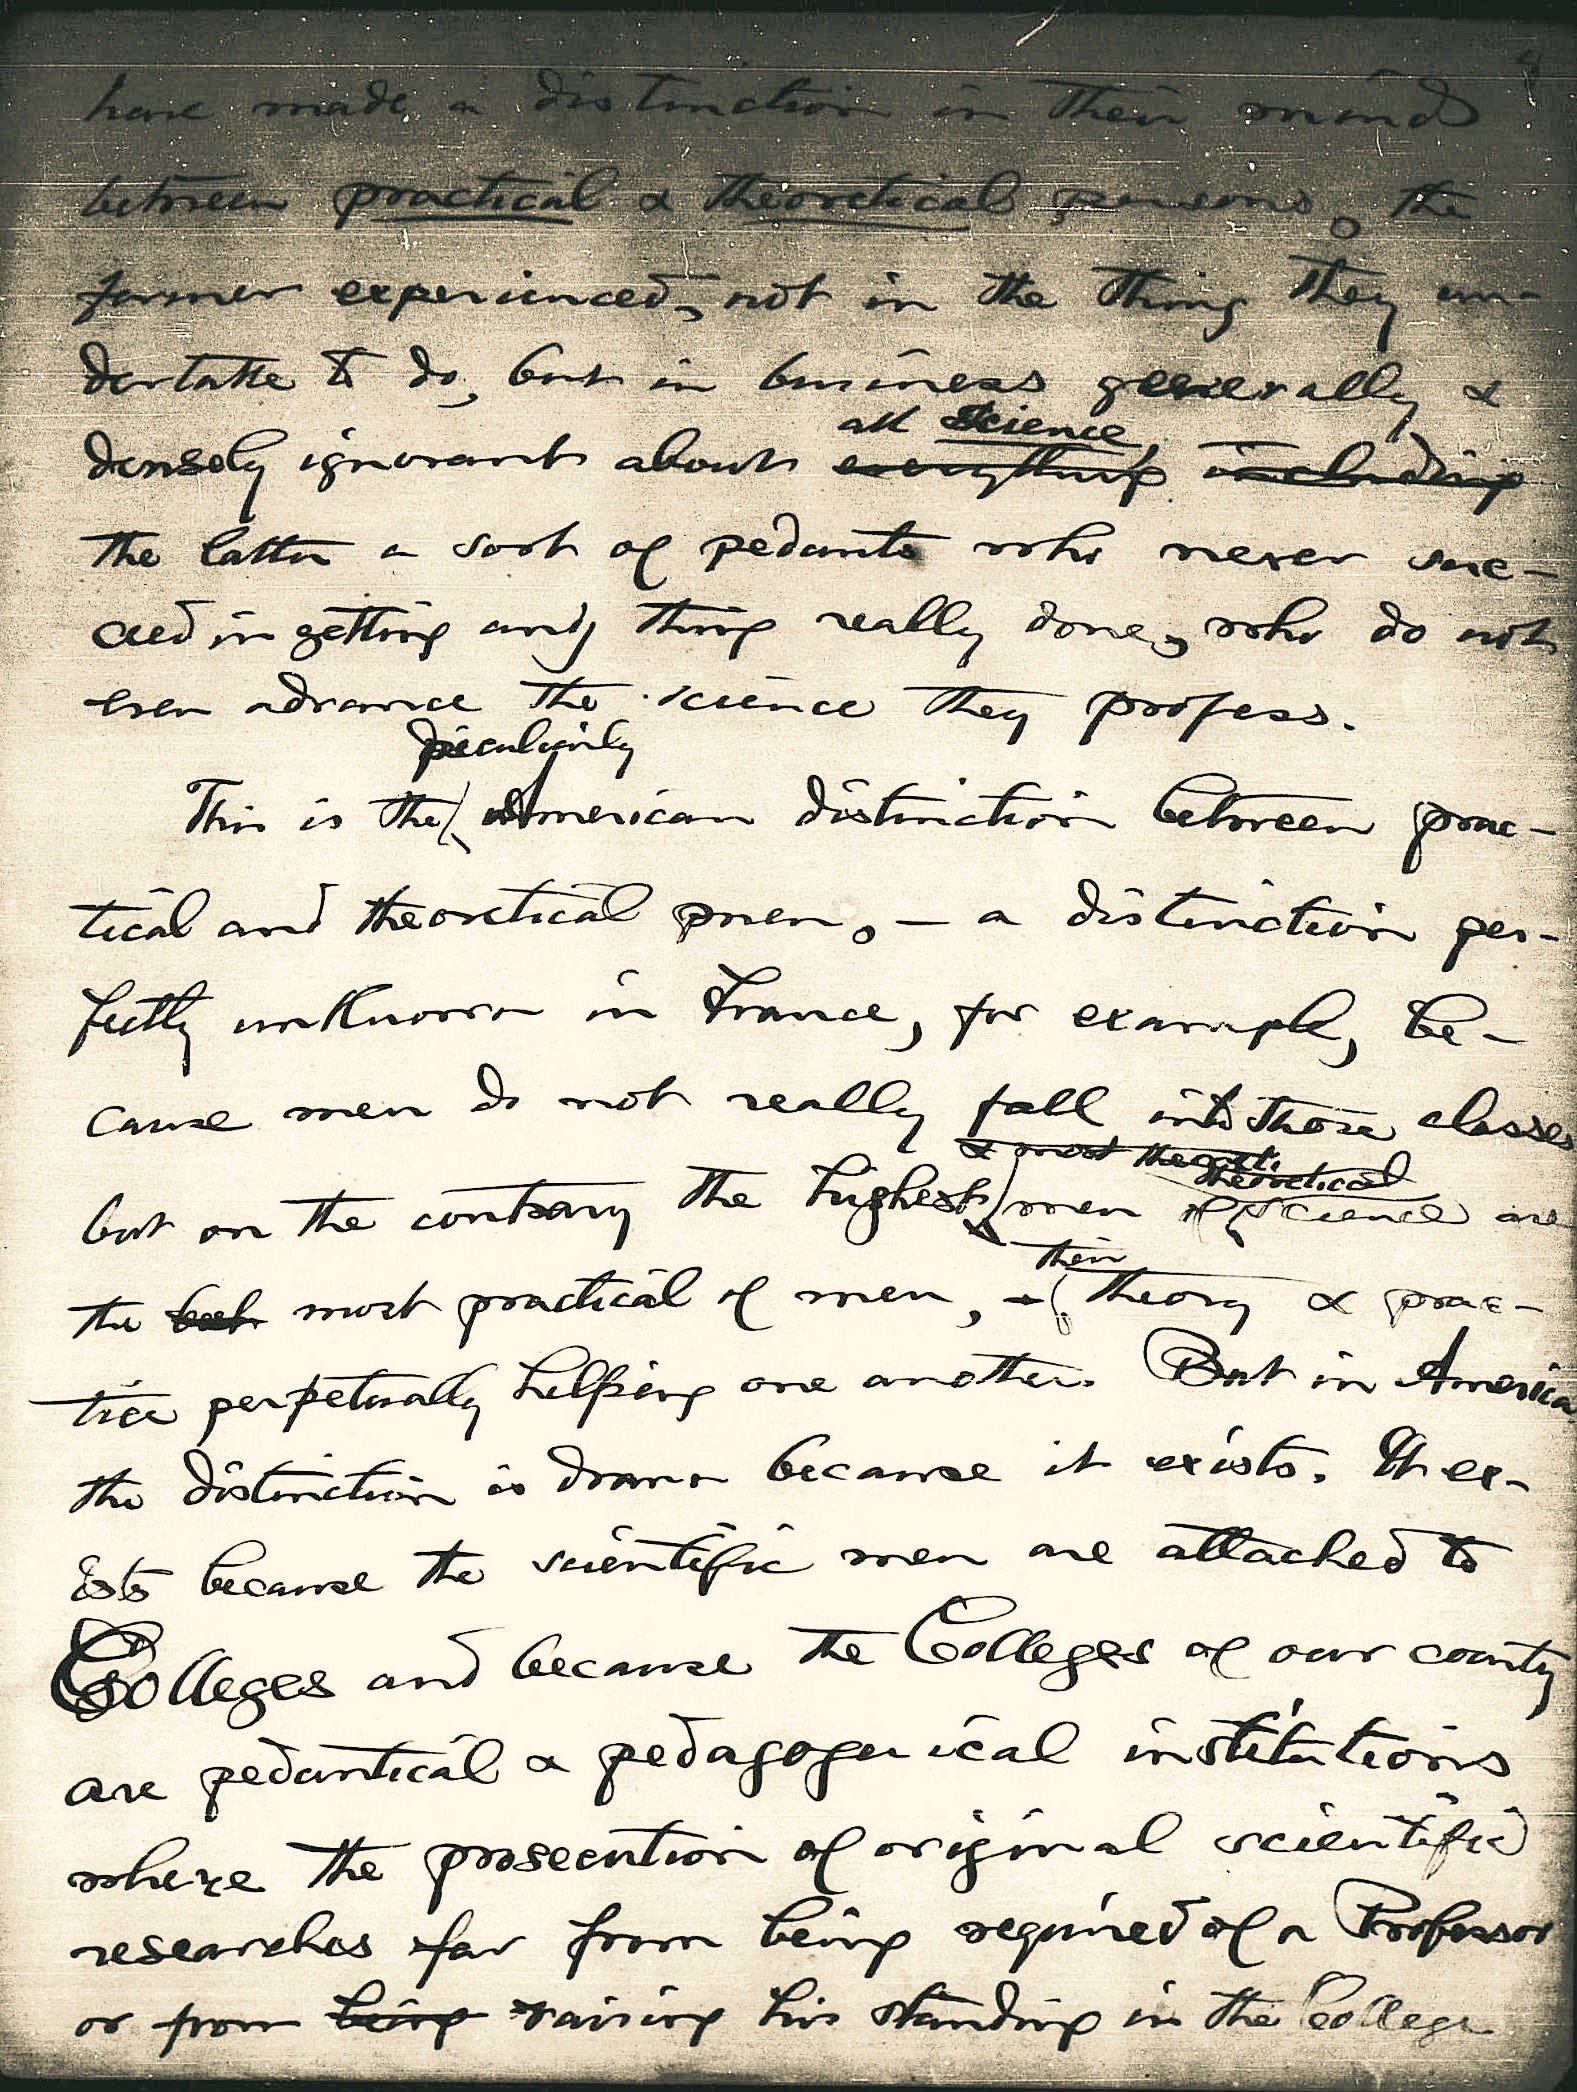 have made a distinction in their minds
between practical & theoretical persons, the
former experienced, not in the thing they un-
dertake to do, but in business generally &
all science,
densely ignorant about everything including
the latter a sort of pedants who never suc-
ceed in getting any thing really done, who do not
even advance the science they profess.
peculiarly
This is the American distinction between prac-
tical and theoretical men, — a distinction per-
fectly unknown in France, for example, be-
cause men do not really fall into those classes
& most theoreti
theoretical
but on the contrary the highest men of science are
their
the best most practical of men, theory & prac-
tice perpetually helping one another. But in America
the distinction is drawn because it exists. It ex-
ists because the scientific men are attached to
Colleges and because the Colleges of our county
are pedantical & pedagoguical institutions
where the prosecution of original scientific
researches far from being required of a Professor
or from being raising his standing in the College